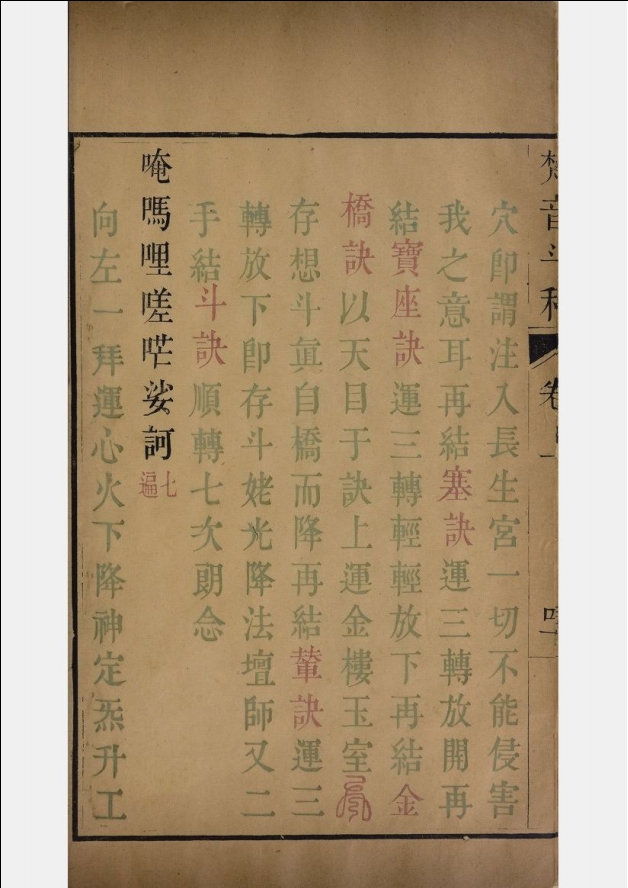 梵音斗科 卷
穴卽謂注入長生宮一切不能侵害
我之意耳再結塞訣運三轉放開再
結寶座訣運三轉輕輕放下再結金
橋訣以天目于訣上運金樓玉室
存想斗眞自橋而降再結輦訣運三
轉放下卽存斗姥光降法壇師又二
手結斗訣順轉七次朗念
唵嗎哩嗟𠵼娑訶七遍
向左一拜運心火下降神定炁升工